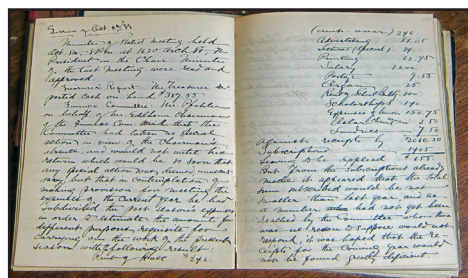 Session of Oct. 8th/99
Minutes of Stated Meeting held
Oct. 8th. 8 P.M. at 1620 Arch St. The
President in the Chair. Minutes
of the last Meeting were read and
approved.
Treasurer's Report. The Treasurer re-
ported cash on hand $
Finance Committee. Mr.
on behalf of the Chairman
of the Finance Com. that this
Committee had taken no special
action in view of the Chairman's
absence and would so wait his
return which would be so soon that
any special action was deemed unneces-
sary, but that in contemplation of
making provision for meeting the
expenses of the current year he had
subdivided the past season's expenses
in order to estimate the amount for
different purposes requisite for
carrying on the work of the present
season, with following results
Rent of Hall $246.
246
Advertising
Lectures (Special)
Printing 62.95
Salary 1200
Postage
Organ 25
Scholarships
Expenses
Sundries 7.50
against receipts by 2060.30
Subscriptions 1405
Leaving to be replaced $ 655.
But from the subscriptions already
made it appeared that the total
sum subscribed would be not
smaller than last year, and as
a number had not yet been
reached by the Committee whom there
was no reason to suppose would not
respond, it was hoped that the re-
ceipts for the coming year would
not be found greatly deficient.